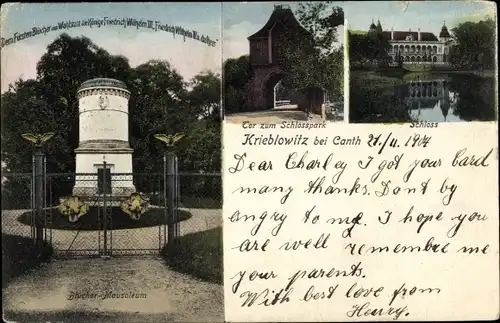 Dem Fürsten Blücher von Wahlstatt die Könige Friedrich Wilhelm III. Friedrich Wilhelm IV. u. das Heer.
Tor zum Schlosspark
Schloss
Krieblowitz bei Canth 21/11 1904
Dear Charley I got your bard
many thanks. Dont by
angry to me. I hope you
are well remembre me
your parents.
With best love from
Henry.
Blücher-Mausoleum